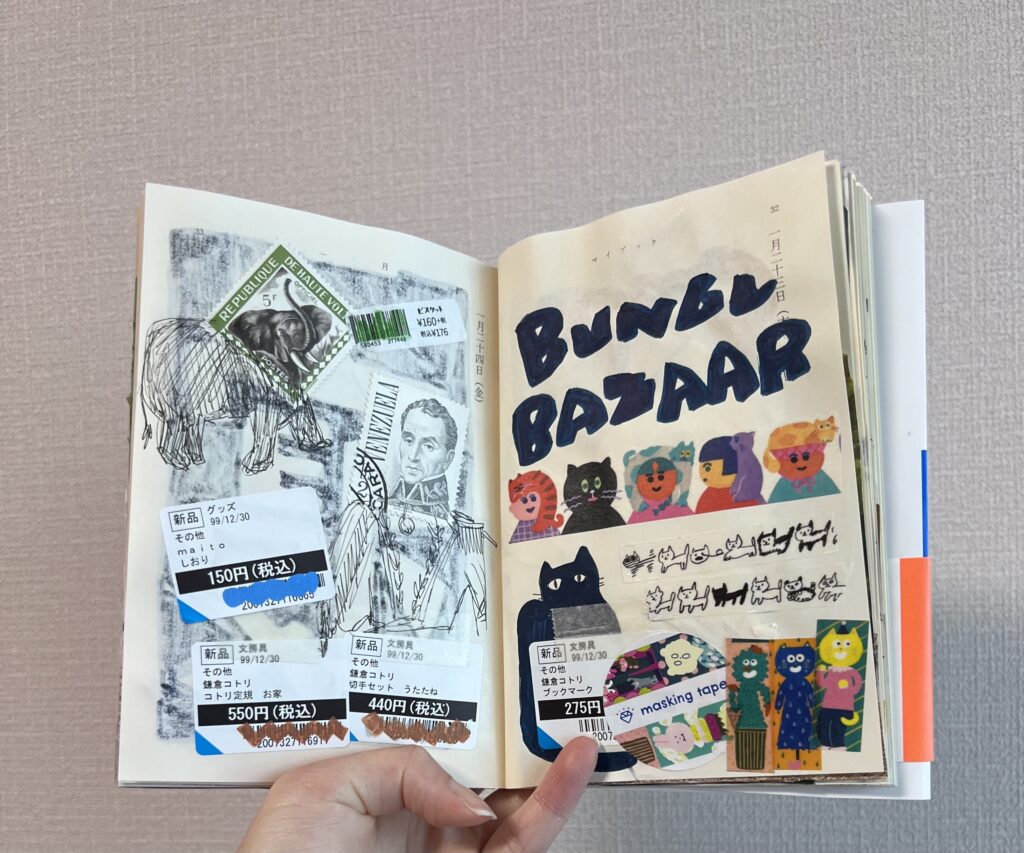 33
一月
一月二十四日（金）
REPUBLIQUE
DE HAUTE VOL
5F
ビスケット
¥160+税
税込¥176
VENEZUELA
新品 グッズ
99/12/30
その他
maito
しおり
150円(税込)
新品 文房具
99/12/30
その他
鎌倉コトリ
コトリ定規 お家
550円(税込)
新品 文房具
99/12/30
その他
鎌倉コトリ
切手セット うたたね
440円(税込)
32
マイブック
一月二十三日
BUNGU
BAZAAR
新品 文房具
99/12/30
その他
鎌倉コトリ
ブックマーク
275円
2007
masking tape